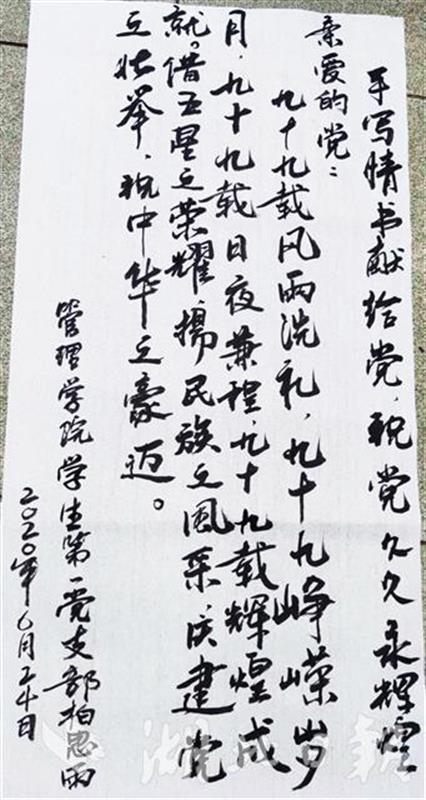 手写情书献给党，祝党久久永辉煌
亲爱的党：
九十九载风雨洗礼，九十九峥嵘岁
月，九十九载日夜兼程，九十九载辉煌成
就。借五星之荣耀，扬民族之风采，庆建党
之壮举，祝中华之豪迈。
管理学院学生第一党支部柏思雨
2020年6月24日
湖北日报